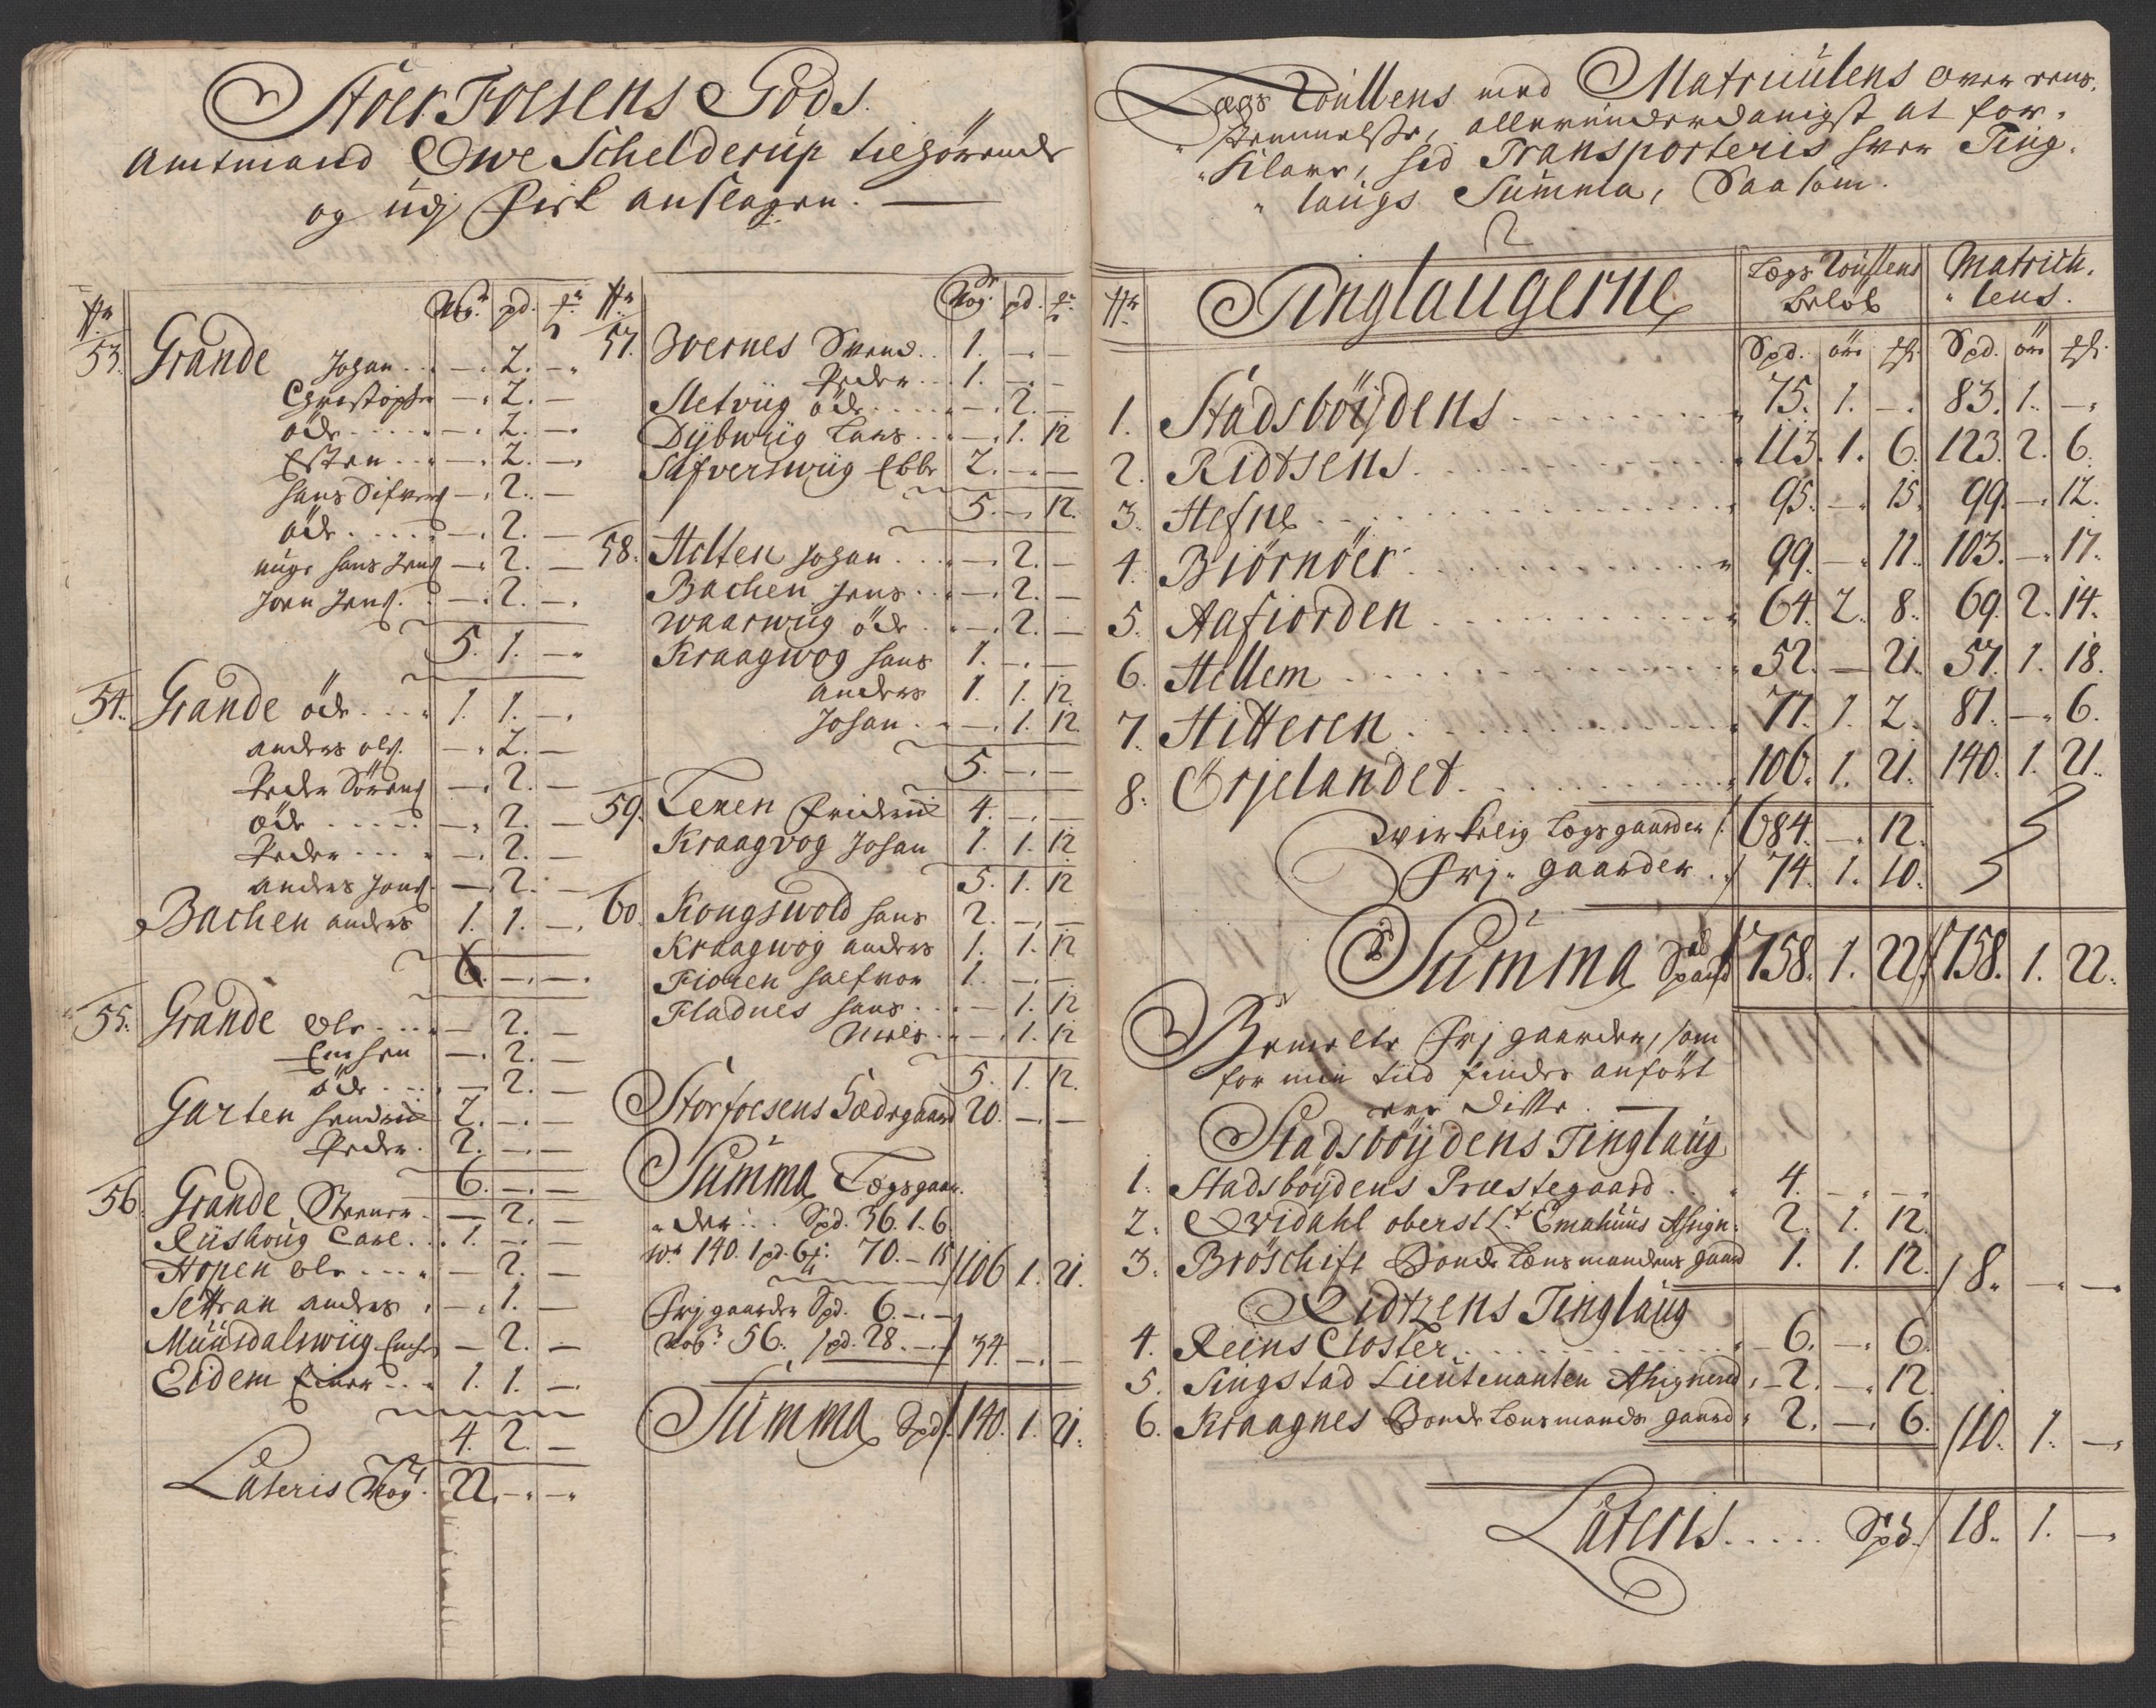 Stoer Foesens Gods
Amtmand Owe Schelderup tilhörende
og udj Fisk anslagen.
Nr. Wog. pd.
53. Grande Johan . . — 2. —
Christopher — 2. —
öde . . . . — 2. —
Esten . . — 2. —
hans Sifvers — 2. —
öde . . . . — 2. —
unge hans Jens — 2. —
Joen Jens. — 2. —
5. 1. —
54. Grande öde . . . 1. 1. —
anders ols. — 2. —
Peder Sörens — 2. —
öde . . . . — 2. —
Peder . . . — 2. —
anders Jons. — 2. —
Bachen anders 1. 1. —
6. — —
55. Grande Ole . . . — 2. —
— 2. —
öde . . . — 2. —
Garten Hendrich 2. — —
Peder . 2. — —
6. — —
56. Grande . — 2. —
Riishoug Carl . . 1. — —
Hopen Ole . . . — 2. —
Settran anders . — 1. —
Muusdalswiig — 2. —
Eidem Einer . . 1. 1. —
4. 2. —
Lateris Wog. 22. — —
Nr. Wog. pd.
57. Wernes Svend . . 1. — —
Peder . . 1. — —
Sletviig öde . . . . — 2. —
Dÿbwiig Lars . . — 1. 12
Safverswiig Ebbe 2. — —
5. — 12.
58. Holten Johan . . . — 2. —
Bachen Jens . . — 2. —
Waarwiig öde . — 2. —
Kraagwog hans 1. — —
anders 1. 1. 12
Johan . . — 1. 12
5. — —
59. Lexen Friderich 4. — —
Kraagvog Johan 1. 1. 12
5. 1. 12
60. Kongswold hans 2. — —
Kraagwog anders 1. 1. 12
Fioren 1. — —
Fladnes hans . . — 1. 12
Niels . . — 1. 12
5. 1. 12.
Storfosens Sædegaard 20. — —
Summa Lægsgaar-
der . . Spd. 36. 1. 6.
Wr. 140. 1 pd. 6 70. — 15 106 1. 21.
Frj gaarder Spd. 6. — —
Wog. 56. 1 pd. 28. — 34. — —
Summa Spd. 140. 1. 21.
Lægs Roullens med Matriculens over eens-
stemmelse, allerunderdanigst at for-
klare, hid Transporteris hver Ting-
laugs Summa, Saasom.
Nr. Tinglaugerne Lægs Roullens Beløb Matricu-
lens.
Spd. öre Spd. öre
1. Stadsböÿdens . . . . . 75. 1. — 83. 1. —
2. Ridtsens . . . . . 113. 1. 6. 123. 2. 6.
3. Hefne . . . . . 95. — 15. 99. — 12.
4. Biörnöer . . . . . 99. — 11. 103. — 17.
5. Aafiorden . . . . . 64. 2. 8. 69. 2. 14.
6. Hellem . . . . . 52. — 21. 57. 1. 18.
7. Hitteren . . . . . 77. 1. 2. 81. — 6.
8. Örjelandet . . . . . 106. 1. 21. 140. 1. 21.
Wirkelig Lægsgaarder 684. — 12.
Frj gaarder . 74. 1. 10.
Summa Spand 758. 1. 22. 758. 1. 22.
Bemelte Frj gaarder, som
for min tiid findes anfört
ere disse. —
Stadsböÿdens Tinglaug
1. Stadsböÿdens Præstegaard . . 4. — —
2. Qvidahl oberst Lt. Emahuus Assign. 2. 1. 12.
3. Bröschift Bonde Lensmandens gaard 1. 1. 12. 8. — —
Ridtzens Tinglaug
4. Reins Closter . . . . . 6. — 6.
5. Singstad Lieutenanten Assignered 2. — 12.
6. Kraagnes Bonde Lensmands gaard 2. — 6. 10. 1. —
Lateris . . . . . Spd. 18. 1. —